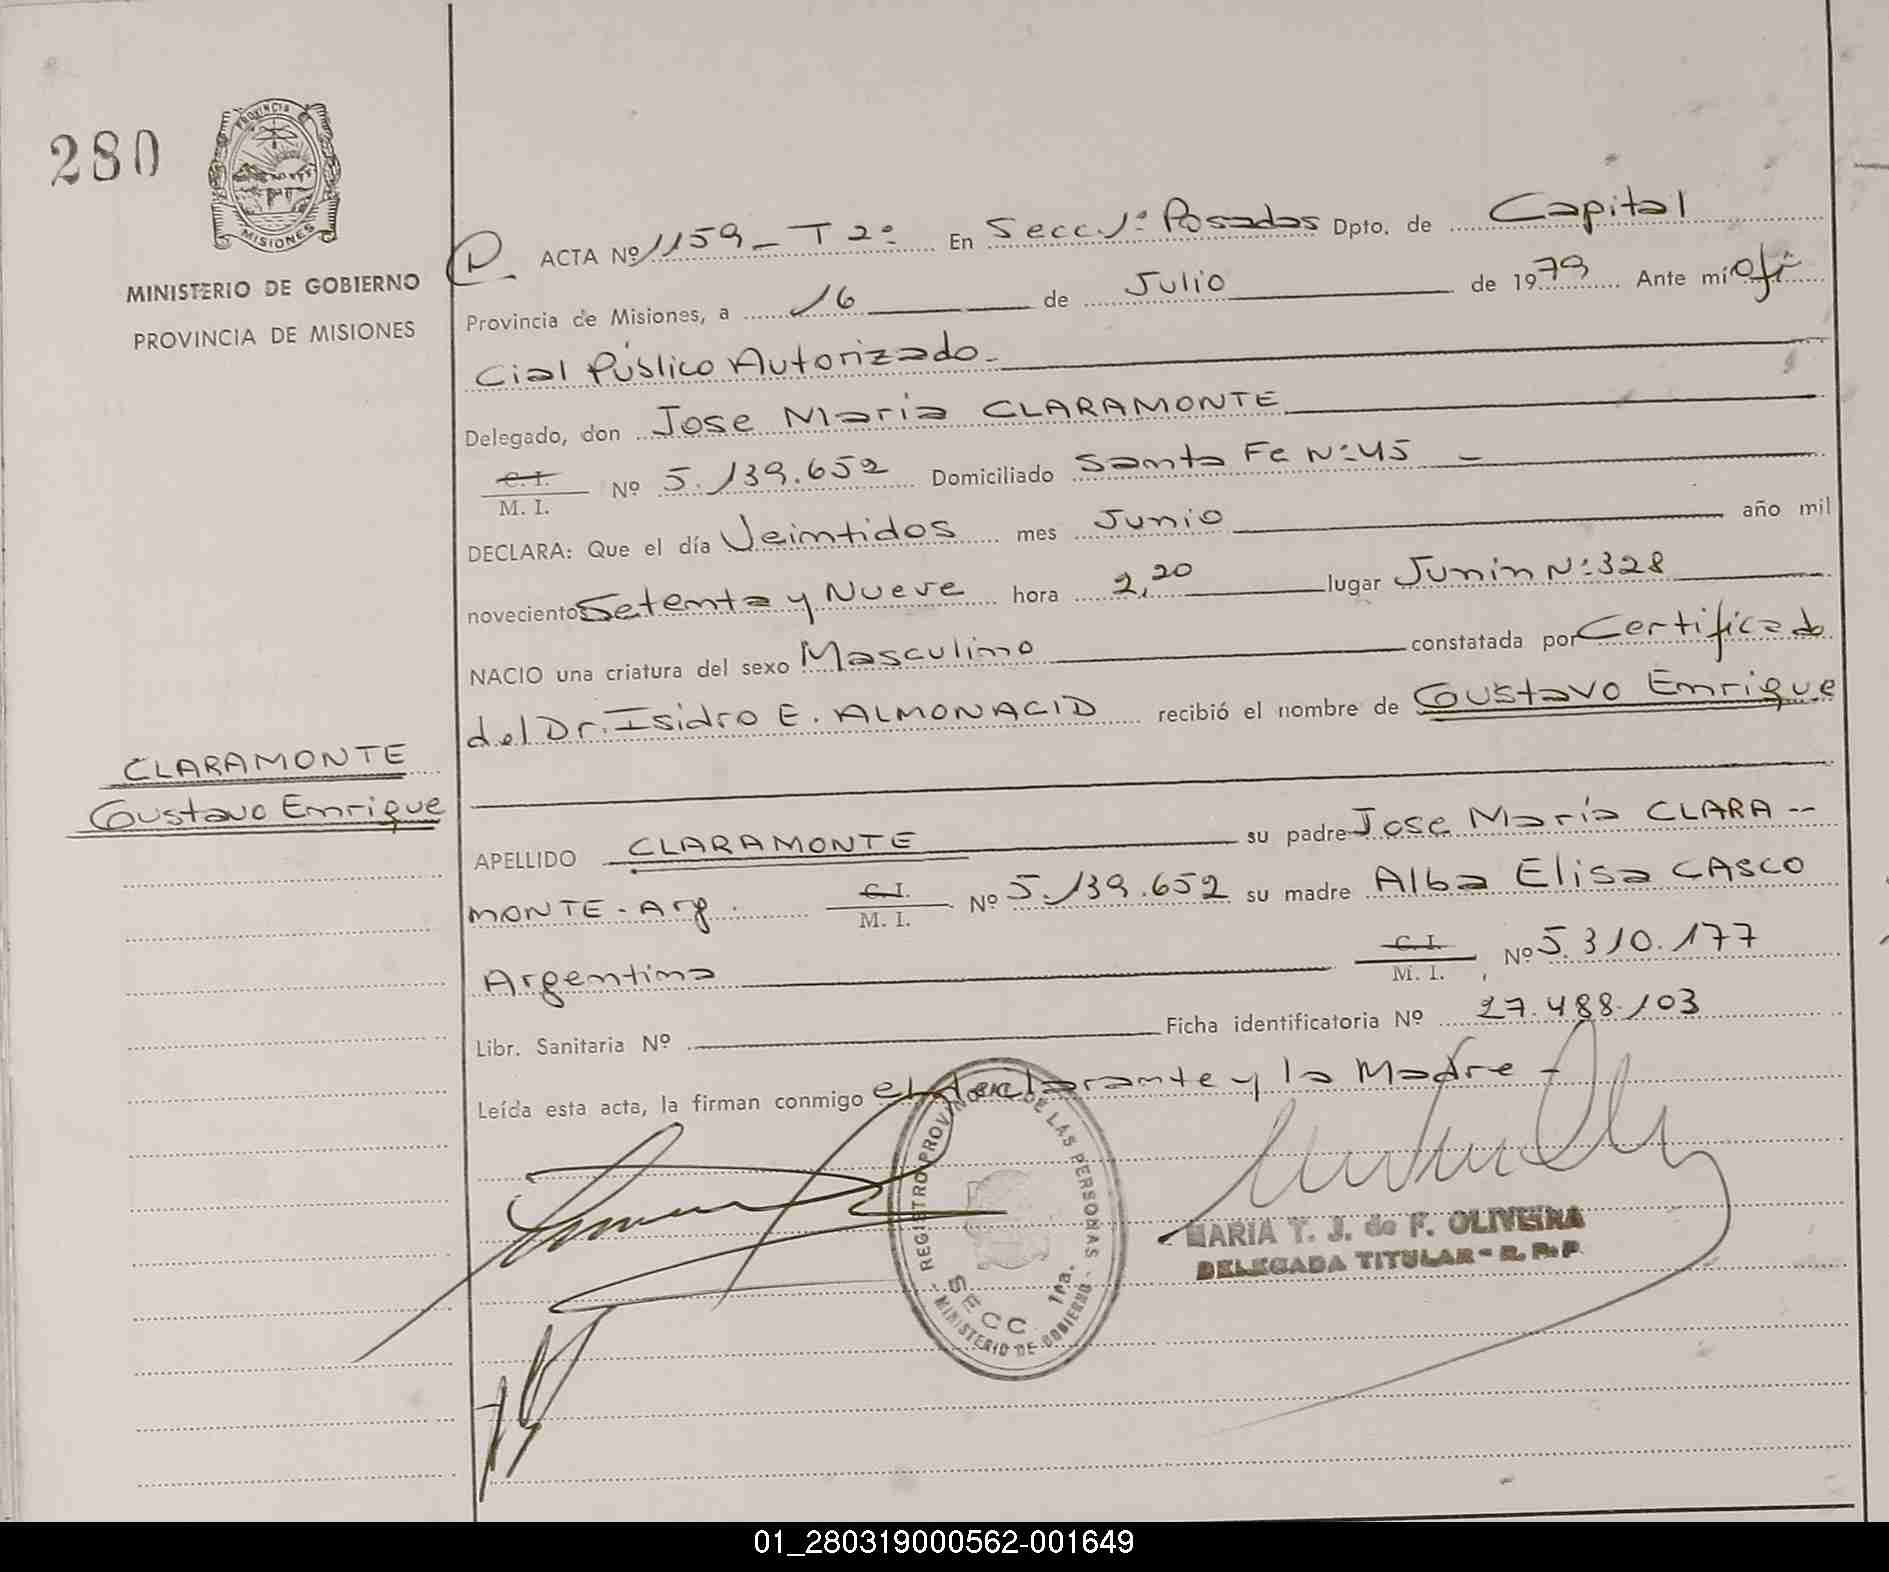 280
PROVINCIA
MISIONES
MINISTERIO DE GOBIERNO
PROVINCIA DE MISIONES
ACTA Nº 1159 - T 2º En Secc. 1º Posadas Dpto. de Capital
Provincia de Misiones, a 16 de Julio de 1979 Ante mí Ofi
cial Público Autorizado.
Delegado, don Jose Maria CLARAMONTE
C. I.
M. I. Nº 5.139.652 Domiciliado Santa Fe Nº 45 -
DECLARA: Que el día Veintidos mes Junio año mil
novecientos Setenta y Nueve hora 2,20 lugar Junin Nº 328
NACIO una criatura del sexo Masculino constatada por Certificado
del Dr. Isidro E. ALMONACID recibió el nombre de Gustavo Enrique
CLARAMONTE
Gustavo Enrique
APELLIDO CLARAMONTE su padre Jose María CLARA --
MONTE - Arg. C. I. M. I. Nº 5.139.652 su madre Alba Elisa CASCO
Argentina C. I. M. I. Nº 5.310.177
Libr. Sanitaria Nº Ficha identificatoria Nº 27.488.103
Leída esta acta, la firman conmigo el declarante y la Madre -
REGISTRO PROVINCIAL DE LAS PERSONAS
SECC. 1ra.
MINISTERIO DE GOBIERNO
MARIA T. J. de F. OLIVEIRA
DELEGADA TITULAR - R. P. P.
01_280319000562-001649